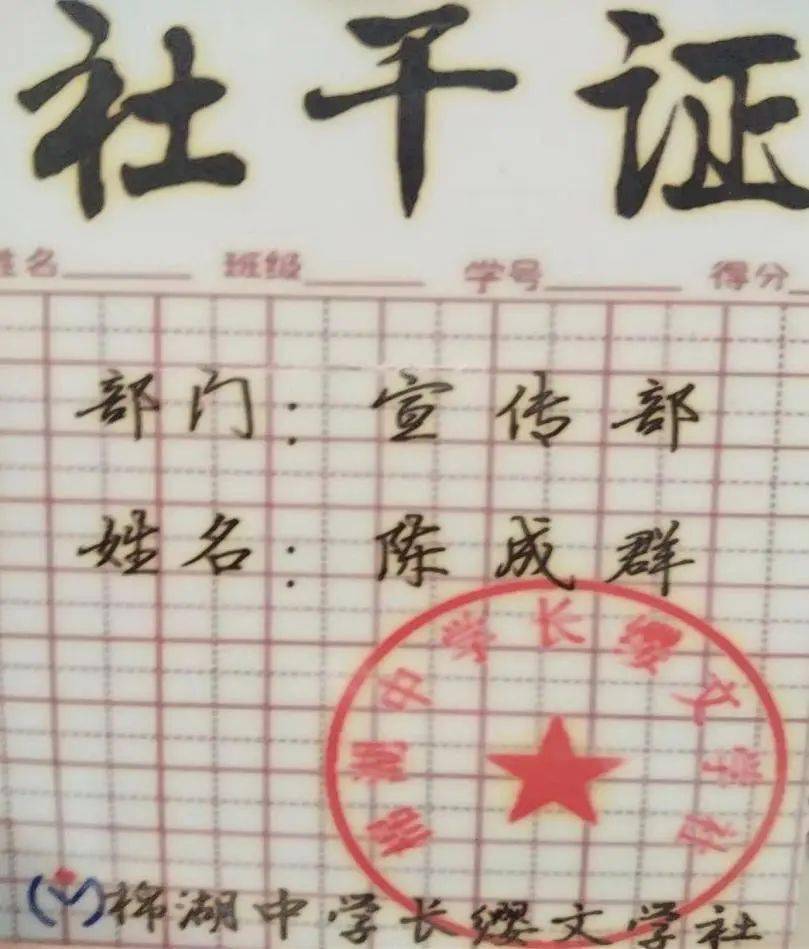 社干证
姓名 班级 学号 得分
部门：宣传部
姓名：陈成群
棉湖中学长缨文学社
棉湖中学长缨文学社